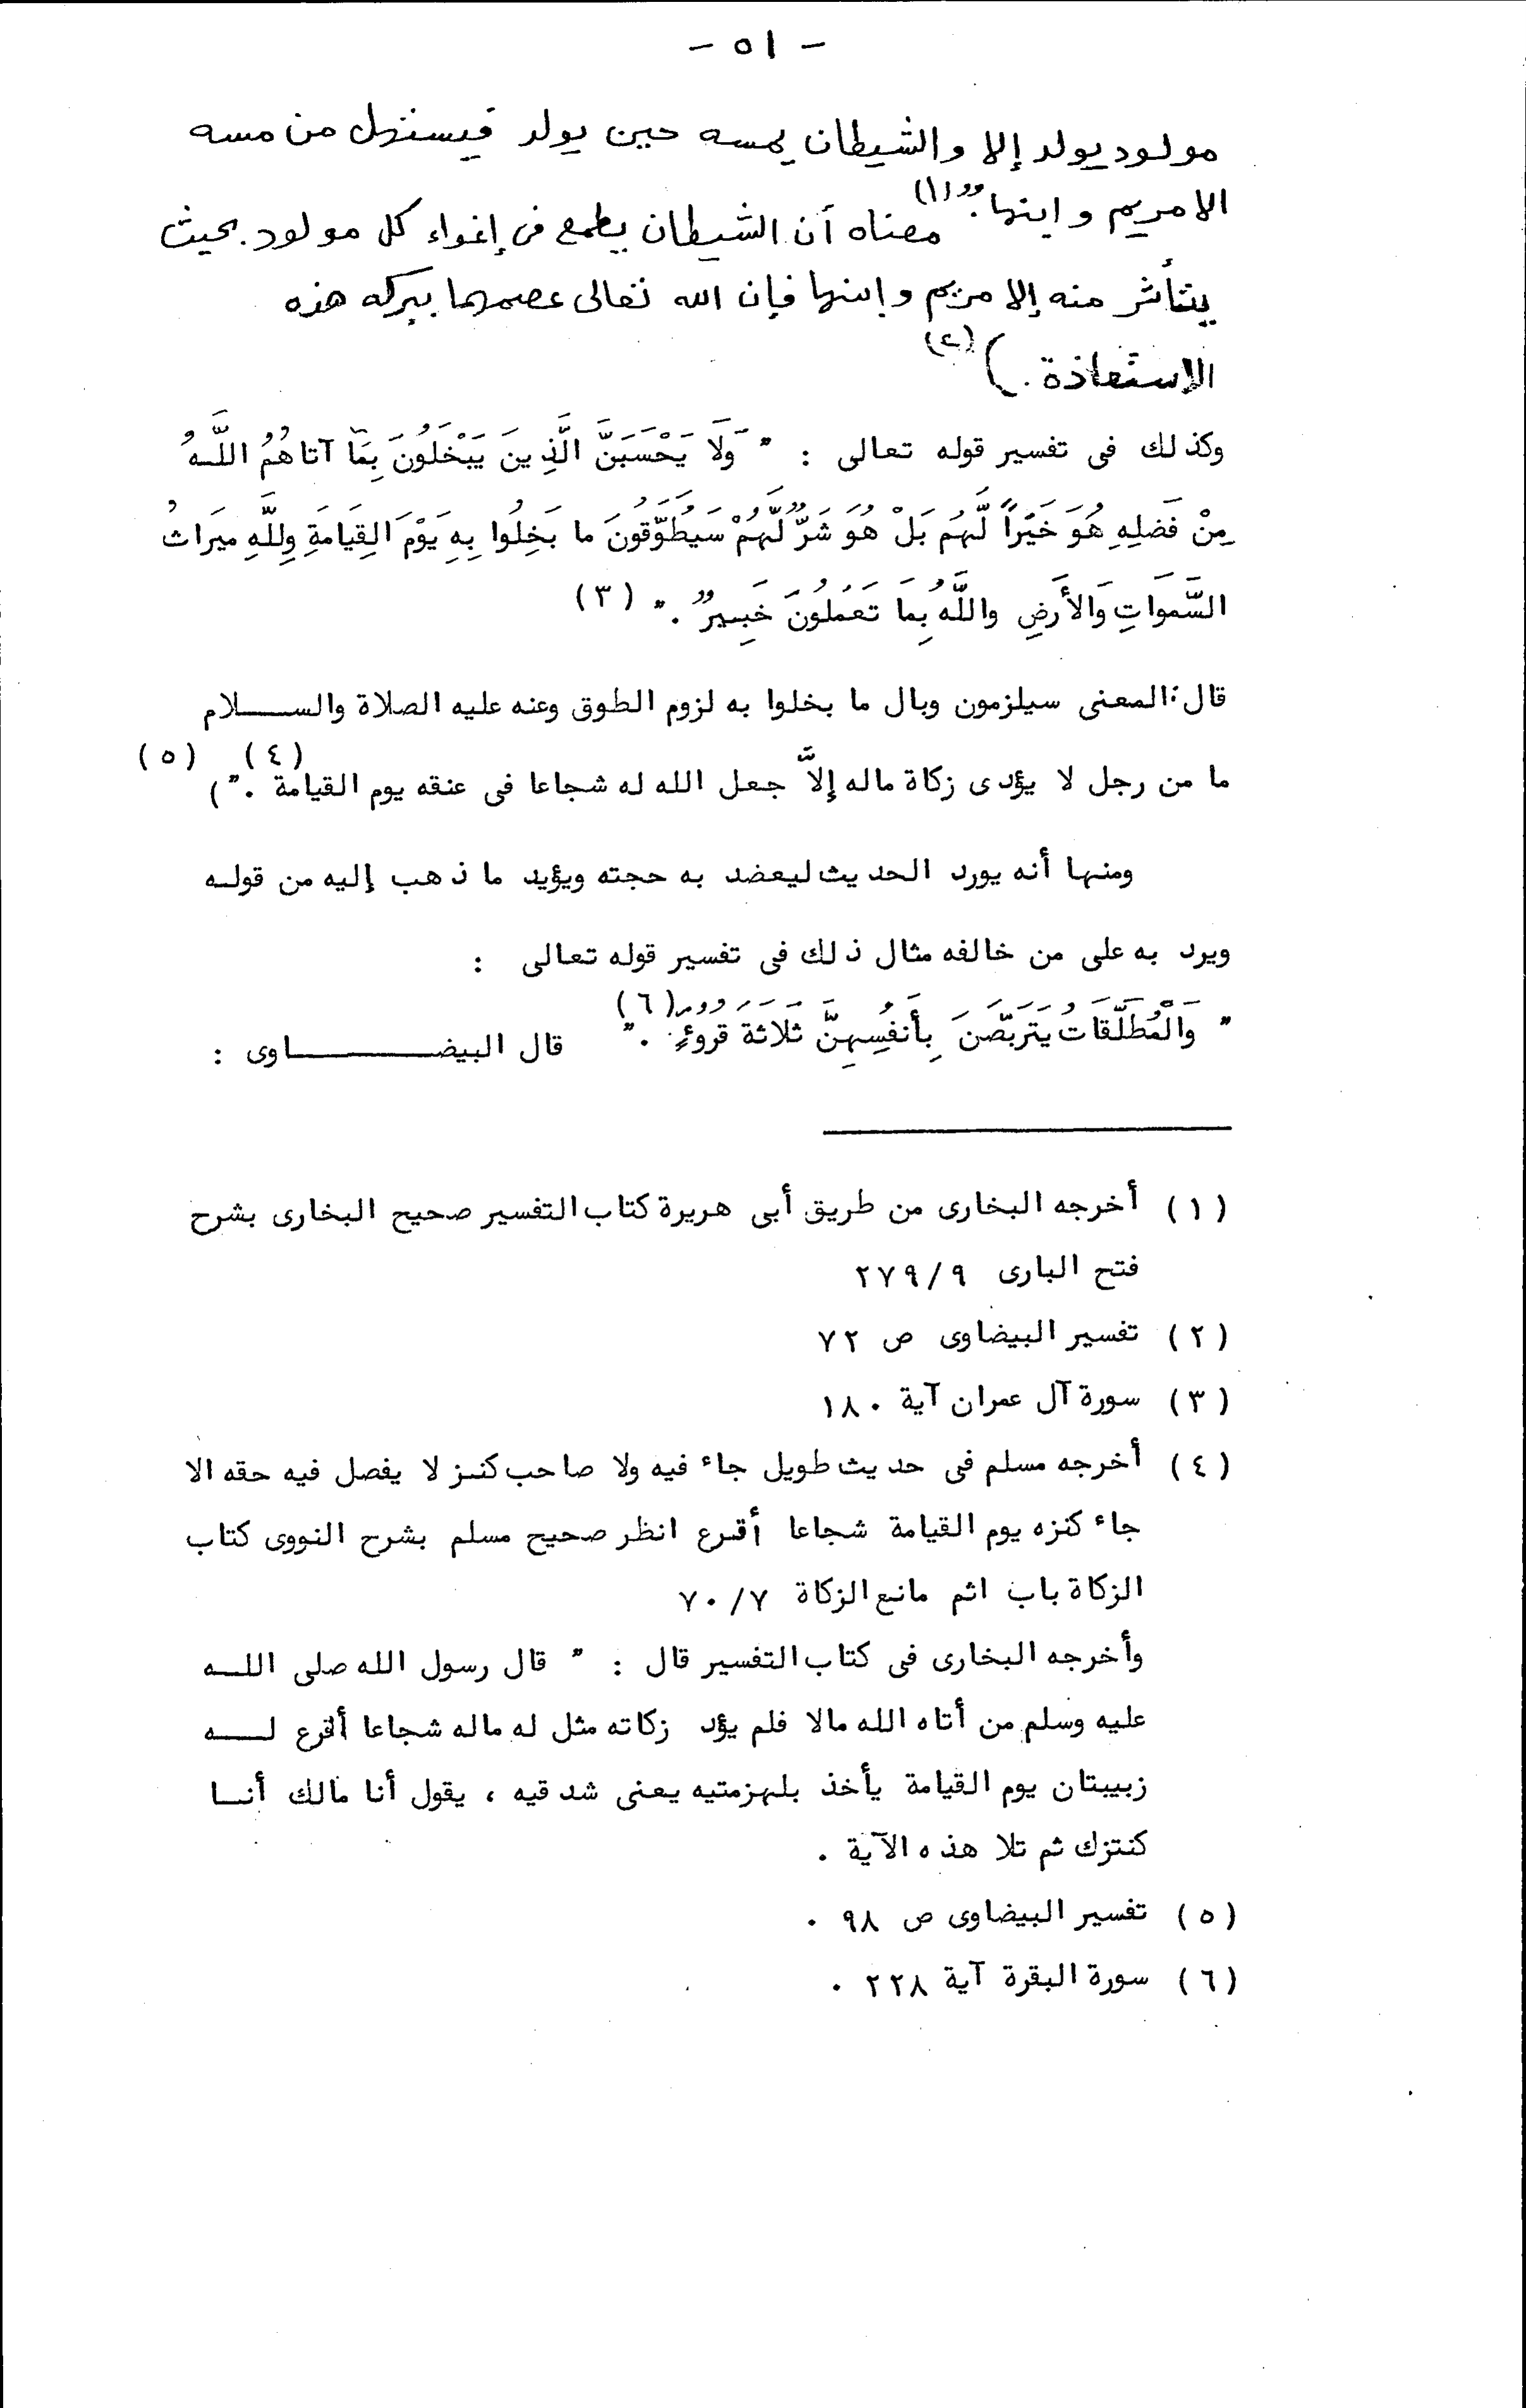 - ٥١ -
مولود يولد إلا والشيطان يمسه حين يولد فيستهل من مسه
الا مريم وابنها." (١) معناه أن الشيطان يطمع فى إغواء كل مولود. بحيث
يتأثر منه إلا مريم وابنها فإن الله تعالى عصمهما ببركه هذه
الاستعاذة . ) (٢)
وكذلك فى تفسير قوله تعالى : " وَلَا يَحْسَبَنَّ الَّذِينَ يَبْخَلُونَ بِمَآ آتاهُمُ اللَّهُ
مِنْ فَضلِهِ هُوَ خَيْراً لَّهُم بَلْ هُوَ شَرٌّ لَّهُمْ سَيُطَوَّقُونَ ما بَخِلُوا بِهِ يَوْمَ القِيَامَةِ وِللَّهِ ميرَاثُ
السَّمَوَاتِ وَالأَرَضِ واللَّهُ بِمَا تَعَمَلُونَ خَبِيرٌ ." (٣)
قال : المعنى سيلزمون وبال ما بخلوا به لزوم الطوق وعنه عليه الصلاة والســـلام
ما من رجل لا يؤدى زكاة ماله إلاَّ جعل الله له شجاعا فى عنقه يوم القيامة ." (٤) ) (٥)
ومنها أنه يورد الحديث ليعضد به حجته ويؤيد ما ذهب إليه من قولـه
ويرد به على من خالفه مثال ذلك فى تفسير قوله تعالى :
" وَالْمُطَلَّقَاتُ يَتَرَبَّصْنَ بِأَنفُسِهِنَّ ثَلَاثَةَ قُروءٍ ." (٦) قال البيضـــــــاوى :
(١) أخرجه البخارى من طريق أبى هريرة كتاب التفسير صحيح البخارى بشرح
فتح البارى ٢٧٩/٩
(٢) تفسير البيضاوى ص ٧٢
(٣) سورة آل عمران آية ١٨٠
(٤) أخرجه مسلم فى حديث طويل جاء فيه ولا صاحب كنـز لا يفصل فيه حقه الا
جاء كنزه يوم القيامة شجاعا أقـرع انظر صحيح مسلم بشرح النووى كتاب
الزكاة باب اثم مانـع الزكاة ٧٠/٧
وأخرجه البخارى فى كتاب التفسير قال : " قال رسول الله صلى اللـه
عليه وسلم من أتاه الله مالا فلم يؤد زكاته مثل له ماله شجاعا أقرع لـــه
زبيبتان يوم القيامة يأخذ بلهزمتيه يعنى شدقيه ، يقول أنا مالك أنـا
كنتزك ثم تلا هذه الآية .
(٥) تفسير البيضاوى ص ٩٨ .
(٦) سورة البقرة آية ٢٢٨ .